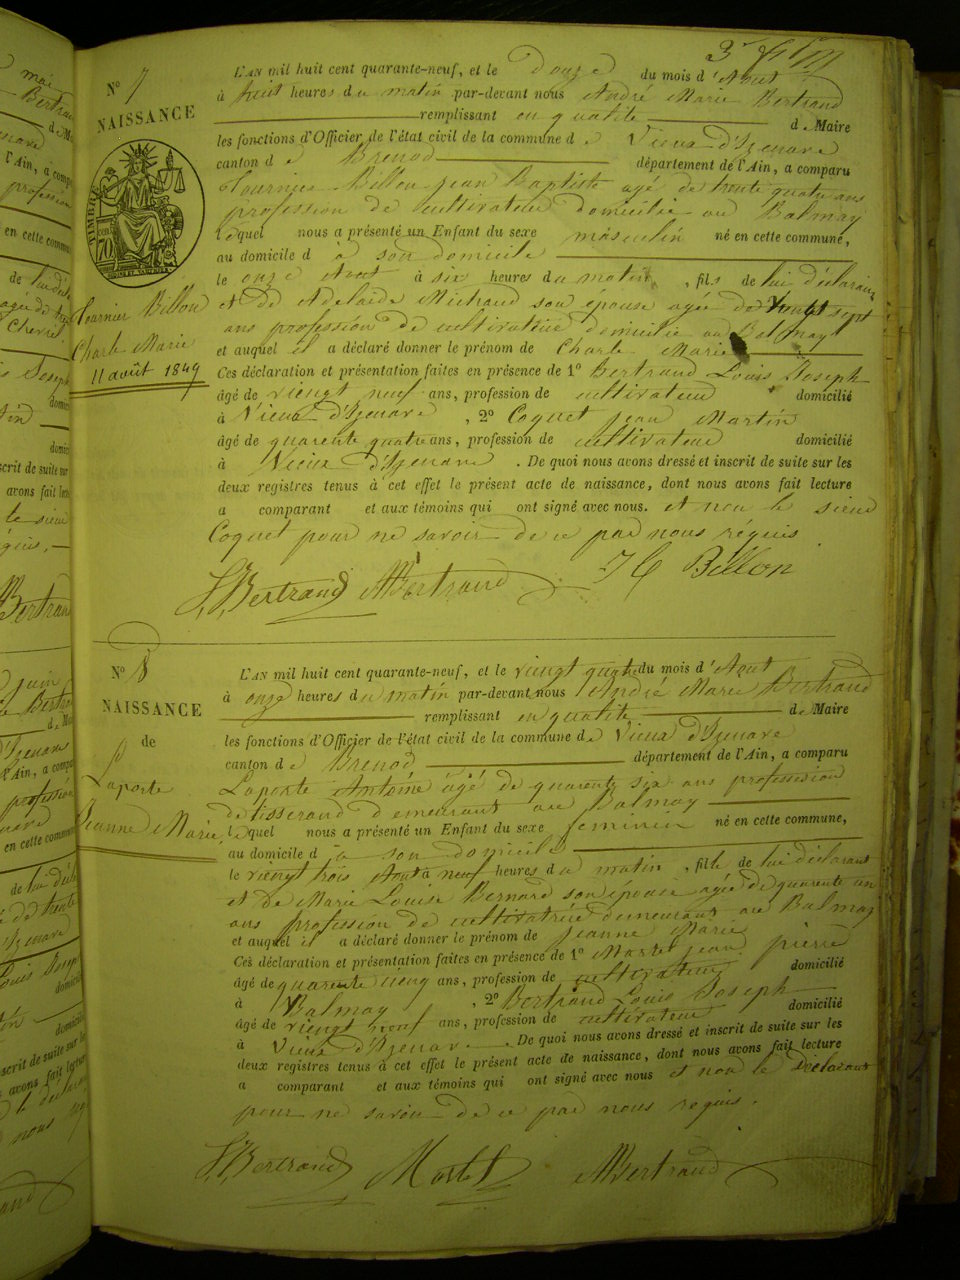 3
N° 7
NAISSANCE
TIMBRE
70
L'AN mil huit cent quarante-neuf, et le douze du mois d'Aout
à huit heures du matin par-devant nous André Marie Bertrand
remplissant en qualité de Maire
les fonctions d'Officier de l'état civil de la commune de Vieux d'Izenave
canton de Brenod département de l'Ain, a comparu
Tournier Billon Jean Baptiste agé de trente quatre ans
profession de cultivateur domicilié au Balmay
lequel nous a présenté un Enfant du sexe masculin né en cette commune,
au domicile d à son domicile
le onze Aout à six heures du matin, fils de lui déclarant
et de Adelaide Michaud son épouse agée de vingt sept
ans profession de cultivateur domicilié au Balmay
et auquel il a déclaré donner le prénom de Charle Marie
Tournier Billon
Charle Marie
11 août 1849
Ces déclaration et présentation faites en présence de 1° Bertrand Louis Joseph
âgé de viengt neuf ans, profession de cultivateur domicilié
à Vieux d'Izenave, 2° Coquet Jean Martin
âgé de quarente quatre ans, profession de cultivateur domicilié
à Vieux d'Izenave. De quoi nous avons dressé et inscrit de suite sur les
deux registres tenus à cet effet le présent acte de naissance, dont nous avons fait lecture
a comparant et aux témoins qui ont signé avec nous. et non le sieur
Coquet pour ne savoir de ce par nous réquis
Bertrand AMBertrand Billon
N° 8
NAISSANCE
de
Laporte
Jeanne Marie
L'AN mil huit cent quarante-neuf, et le viengt quatre du mois d'Aout
à onze heures du matin par-devant nous André Marie Bertrand
remplissant en qualité de Maire
les fonctions d'Officier de l'état civil de la commune de Vieux d'Izenave
canton de Brenod département de l'Ain, a comparu
Laporte Antoine agé de quarente six ans professsion
de tisserand demeurant au Balmay
lequel nous a présenté un Enfant du sexe feminin né en cette commune,
au domicile d à son domicile
le viengt trois Aout à neuf heures du matin, fille de lui déclarant
et de Marie Louise Bernard son épouse agée de quarente un
ans profession de cultivatrice demeurant au Balmay
et auquel il a déclaré donner le prénom de Jeanne Marie
Ces déclaration et présentation faites en présence de 1° Martel Jean pierre
âgé de quarente cieng ans, profession de cultivateur domicilié
à Balmay, 2° Bertrand Louis Joseph
âgé de viengt neuf ans, profession de cultivateur domicilié
à Vieux d'Izenave. De quoi nous avons dressé et inscrit de suite sur les
deux registres tenus à cet effet le présent acte de naissance, dont nous avons fait lecture
a comparant et aux témoins qui ont signé avec nous et non le Déclarant
pour ne savoir de ce par nous requis.
Bertrand Martel AMBertrand